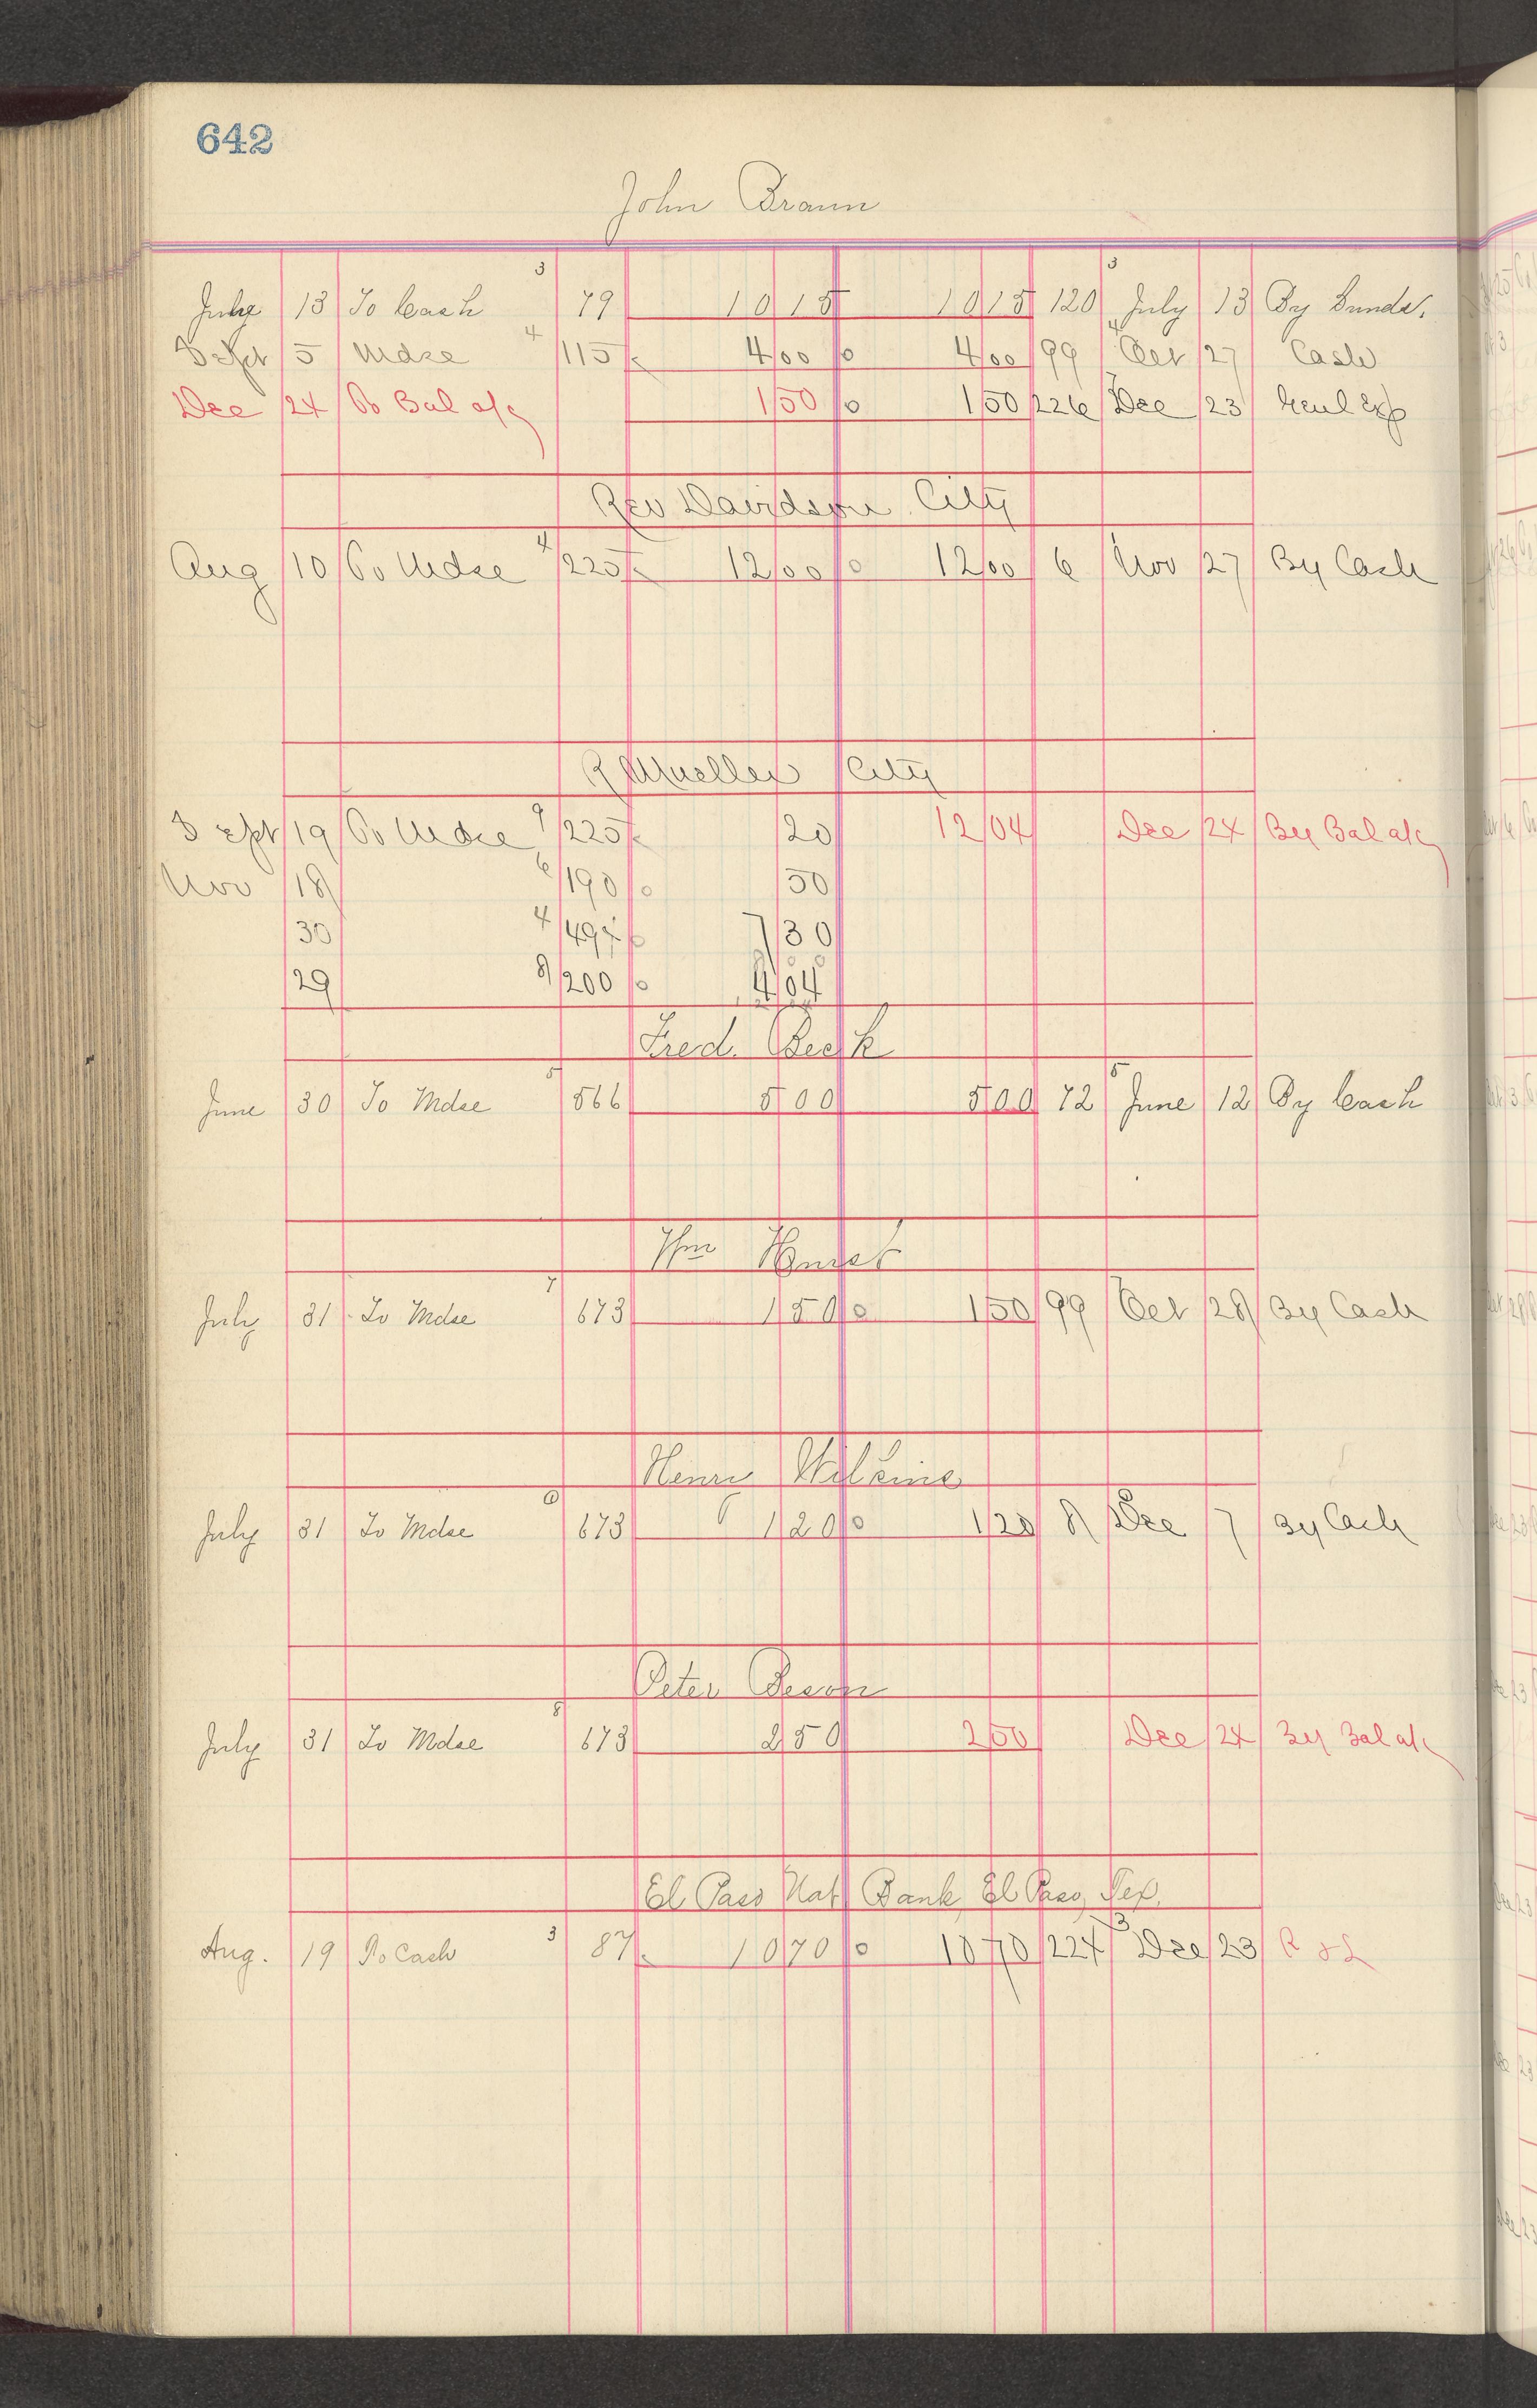 642
John Braun
July 13 To Cash 3 79 10 15 10 15 120 3 July 13 By Sunds.
Sept 5 Mdse 4 115 4 00 4 00 99 4 Oct 27 Cash
Dec 24 To Bal a/c 1 50 1 50 226 Dec 23 Genl Exp
Rev Davidson City
Aug 10 To Mdse 4 225 12 00 12 00 6 Nov 27 By Cash
R Mueller City
Sept 19 To Mdse 9 225 20 12 04 Dec 24 By Bal a/c
Nov 18 6 190 50
30 4 497 7 30
29 8 200 4 04
Fred. Beck
June 30 To Mdse 5 566 5 00 5 00 72 5 June 12 By Cash
July 31 To Mdse 7 673 1 50 1 50 99 Oct 28 By Cash
Henry
July 31 To Mdse 673 1 20 1 20 8 Dec 7 By Cash
Peter
July 31 To Mdse 8 673 2 50 2 50 Dec 24 By Bal a/c
El Paso Nat Bank, El Paso, Tex.
Aug. 19 To Cash 3 87 10 70 10 70 224 3 Dec 23